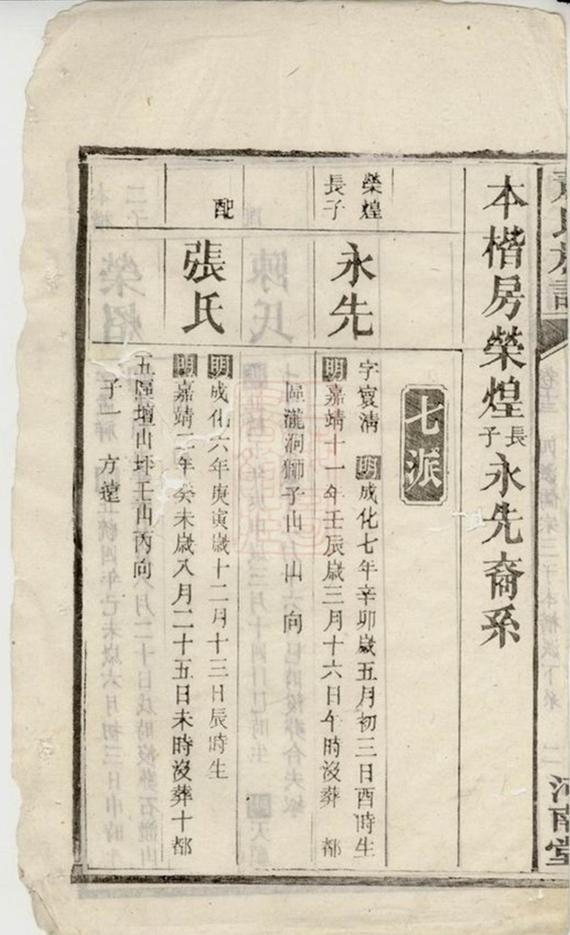 氏族譜
河南堂
本楷房榮煌長子永先裔系
七派
榮煌
長子
永先
字寘淸 明成化七年辛卯歲五月初三日酉時生
明嘉靖十一年壬辰歲三月十六日午時沒葬 都
區瀧洞獅子山 山 向
配
張氏
明成化六年庚寅歲十二月十三日辰時生
明嘉靖二年癸未歲八月二十五日未時沒葬十都
五區壇山坪壬山丙向
子一 方遠